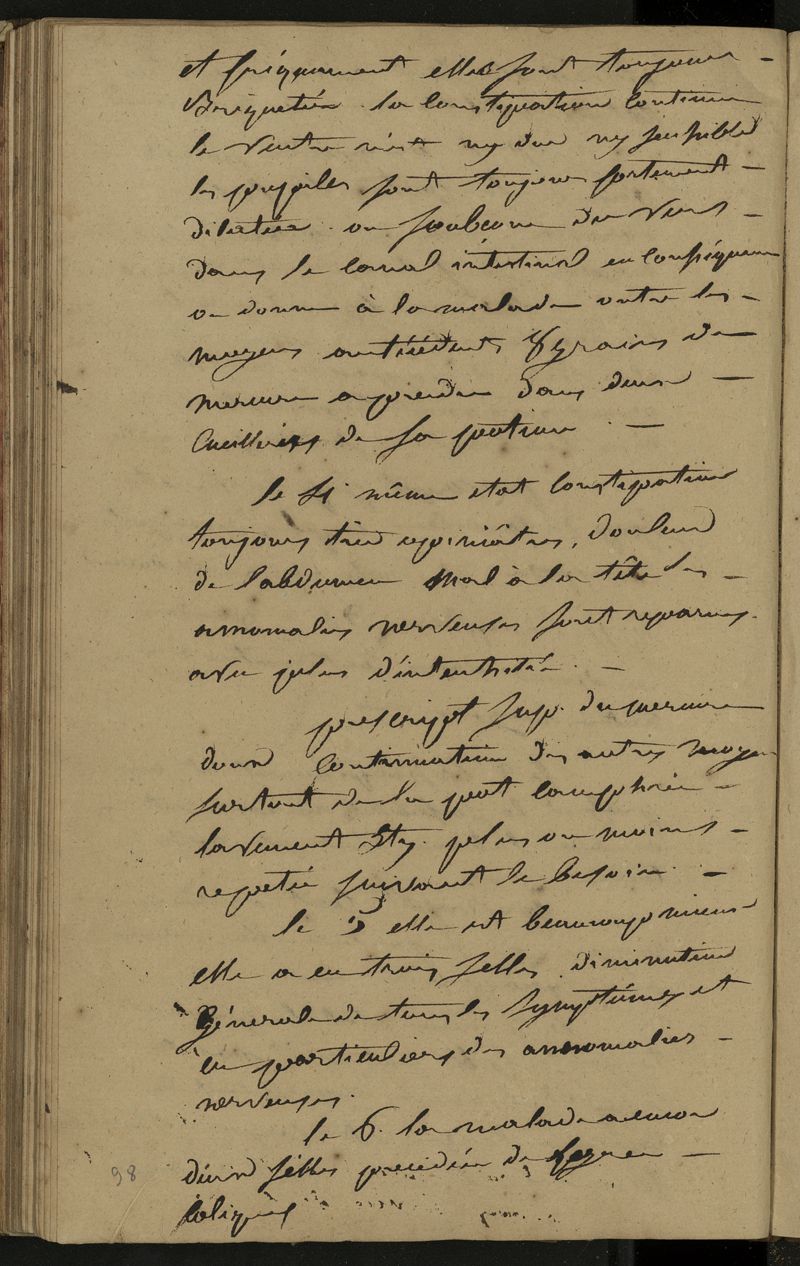 et frequament elles sont toujours
Briquetée. la constipation continue
le ventre n'est ny dur ny sensible
les pupiles sont toujours fortement
dilatées. on soubconne des vers
dans le canal intestinal en consequence
on donne à la malade outre les
moyens antécédents 8 grains de
mercure a prendre dans deux
Cueillères de sa potion.
le 4 même etat constipation
toujours très opiniâtres, douleurs
de l'abdomen mal à la tête les
anomalies nerveuses sont reparues
avec plus d'intensité.
prescript sup. du mercure
doux continuation des autres moyens
surtout de la pot camphrée
lavement id. plus ou moins
repetée suivant le besoin.
le 5 elle est beaucoup mieux
elle a eu trois selles. diminution
Générale de tous les symptômes et
en particuliers des annomalies
nerveuses.
le 6. la malade a encore
deux selles precedée de legere
coliques
98